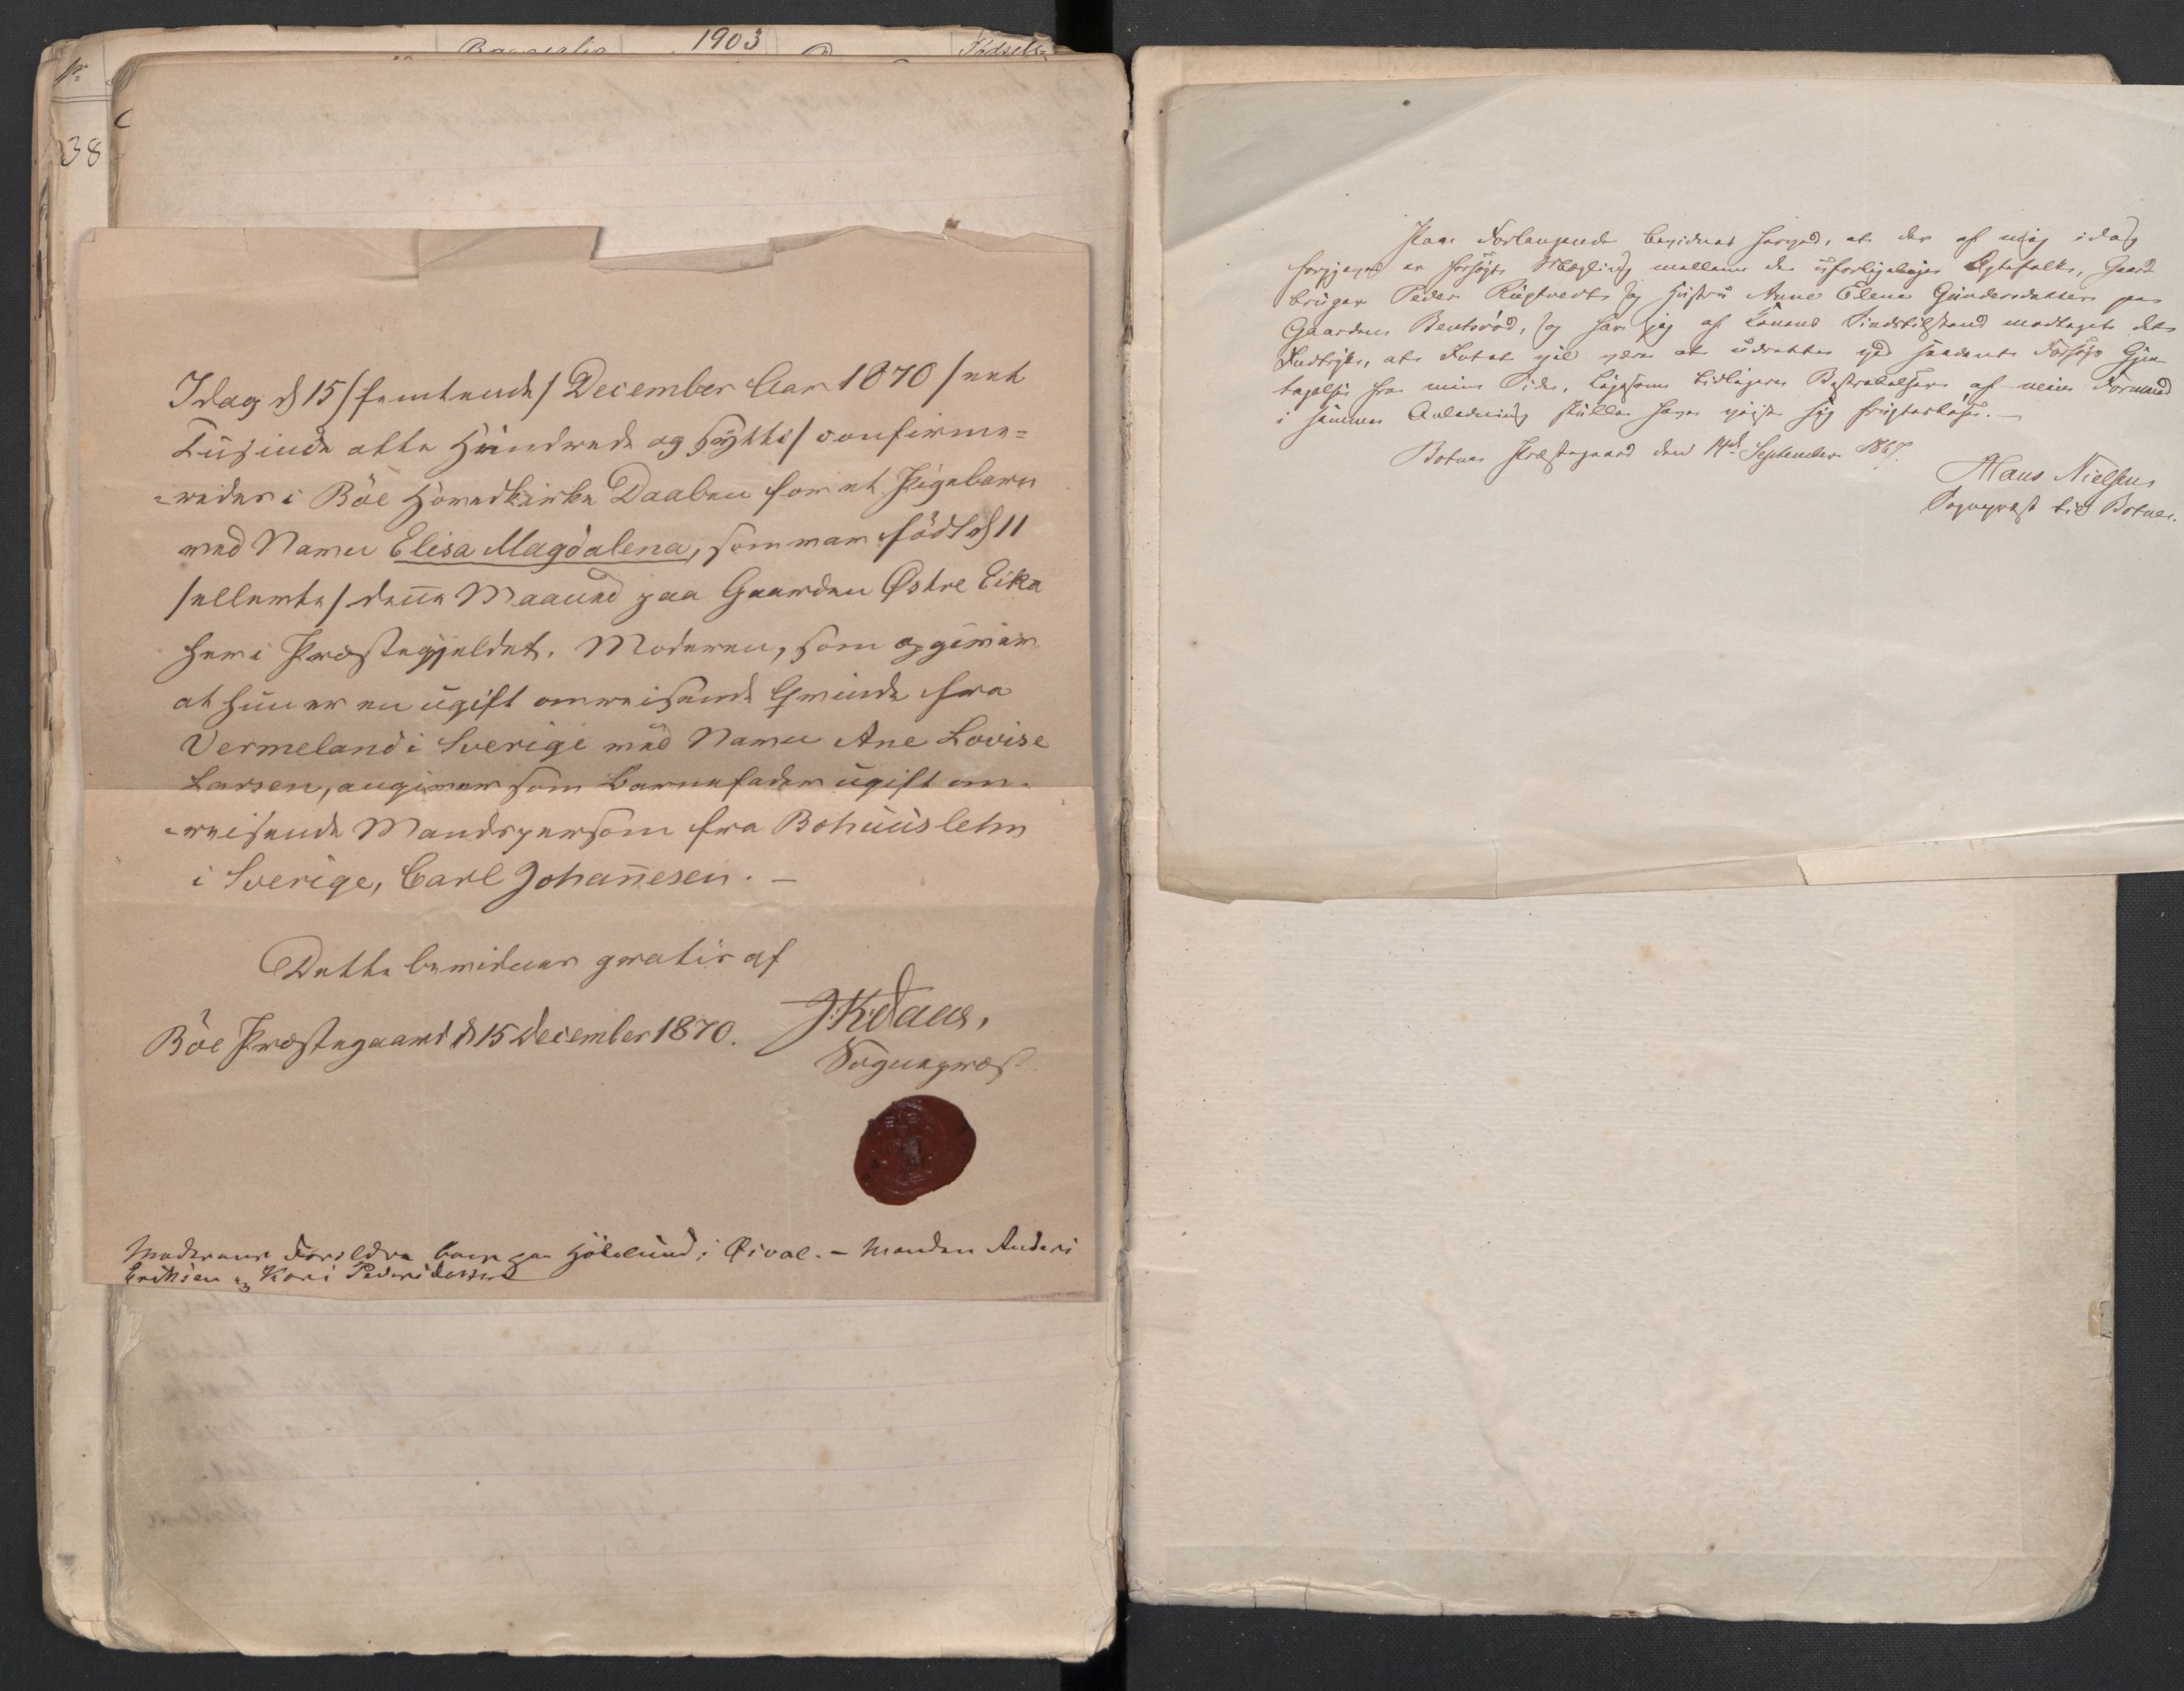 Barnealia 1903 Fødsels-
Nr.
38
Idag d 15 /femtende/ December Aar 1870 /eet
Tusinde otte Hundrede og Sytti/ confirme=
=redes i Böe Hovedkirke Daaben for et Pigebarn
med Navn Elisa Magdalena, som var født d 11
/ellevte/ denne Maaned paa Gaarden Østre Eika
her i Præstegjeldet. Moderen, som opgiver
at hun er en ugift omreisende Qvinde fra
Vermeland i Sverige med Navn Ane Lovise
Larsen, angiver som Barnefader ugift om-
-reisende Mandsperson fra Bohuuslehn
i Sverige, Carl Johannesen. —
Dette bevidnes gratis af
Böe Præstegaard d 15 December 1870.
Sogneprest
Moderens Forældre boer paa i — Manden Anders
Eriksen og Kari Pedersdatter
Paa Forlangende bevidnes herved, at der af mig idag
forgjæves er forsøgt Mægling mellem de uforligelige Ægtefolk, Gaard-
bruger Peder og Hustru Anne Elene Gundersdatter paa
Gaarden Bentsröd, og har jeg af Konens Sindstilstand modtaget det
Indtryk, at Intet vil være at udrette ved saadant Forsøgs Gjen-
tagelse fra min Side, ligesom tidligere Bestræbelser af min Formand
i samme Anledning skulle have viist sig frugtesløse. —
Botne Præstegaard den 14de September 1867.
Hans Nielsen,
Sogneprest til Botne.